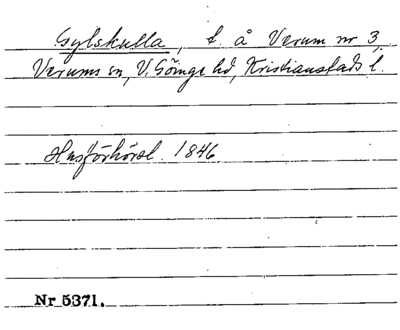 Gylskulla, t. å Verum nr 3,
Verums sn, V. Göinge hd, Kristianstads l.
Husförhörsl. 1846
Nr 5371.